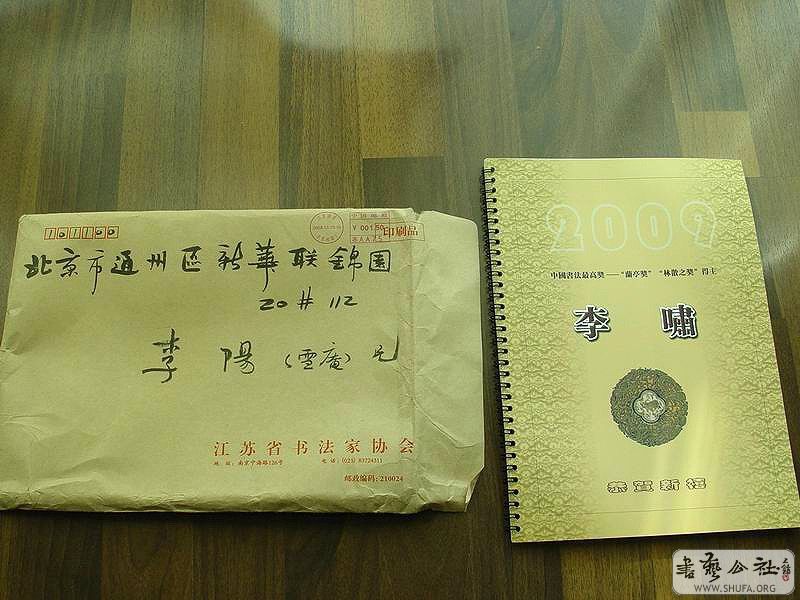 101100
中国邮政
¥ 001.50
印刷品
北京市通州區新華联錦園
20# 112
李 陽（雪庵）兄
江苏省书法家协会
地 址：南京宁海路126号 电 话：(025) 83724311
邮政编码：210024
2009
中國書法最高獎——“蘭亭獎”“林散之獎”得主
李 嘯
恭賀新禧
書藝公社
WWW.SHUFA.ORG